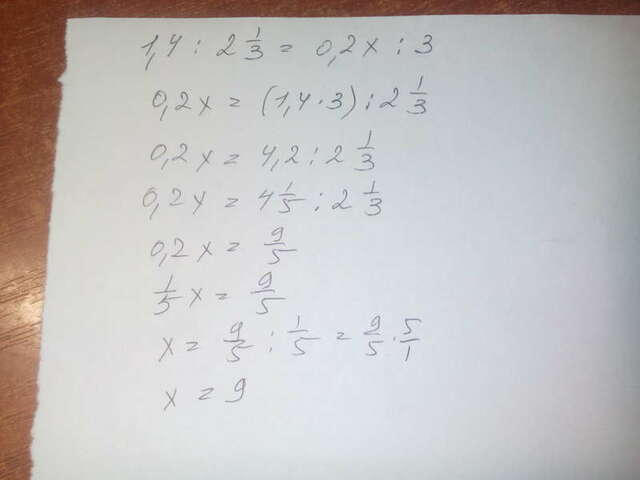 1,4 : 2 1/3 = 0,2x : 3
0,2x = (1,4 · 3) : 2 1/3
0,2x = 4,2 : 2 1/3
0,2x = 4 1/5 : 2 1/3
0,2x = 9/5
1/5 x = 9/5
x = 9/5 : 1/5 = 9/5 · 5/1
x = 9